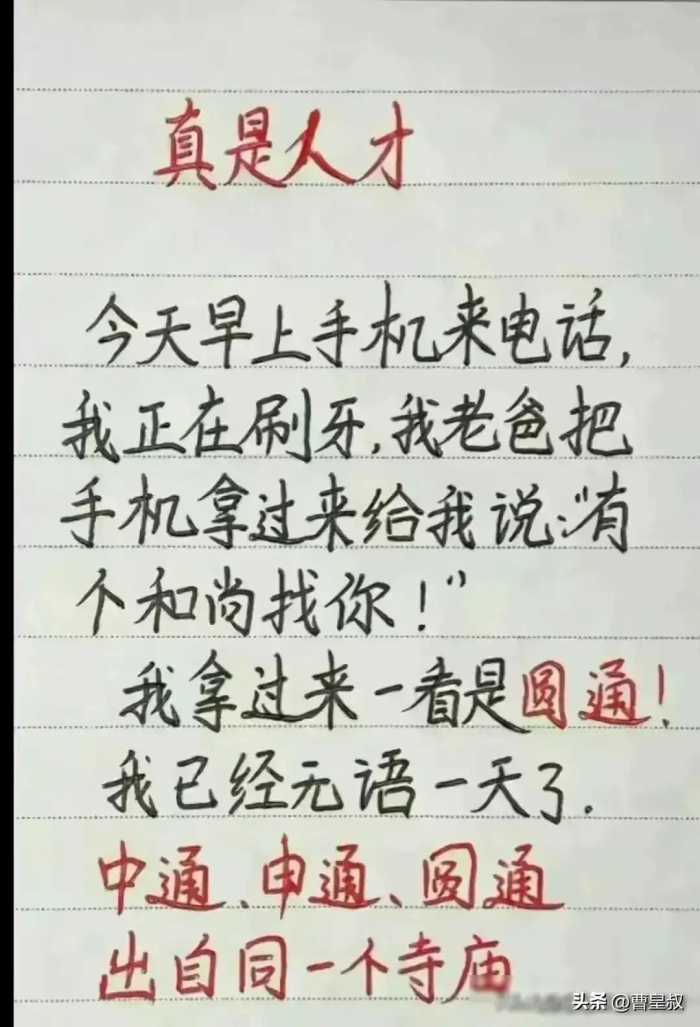 真是人才
今天早上手机来电话,
我正在刷牙,我老爸把
手机拿过来给我说:“有
个和尚找你!”
我拿过来一看是圆通!
我已经无语一天了.
中通、申通、圆通
出自同一个寺庙
头条 @曹皇叔